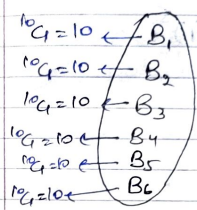 ¹⁰C₁ = 10 ← B₁
¹⁰C₁ = 10 ← B₂
¹⁰C₁ = 10 ← B₃
¹⁰C₁ = 10 ← B₄
¹⁰C₁ = 10 ← B₅
¹⁰C₁ = 10 ← B₆